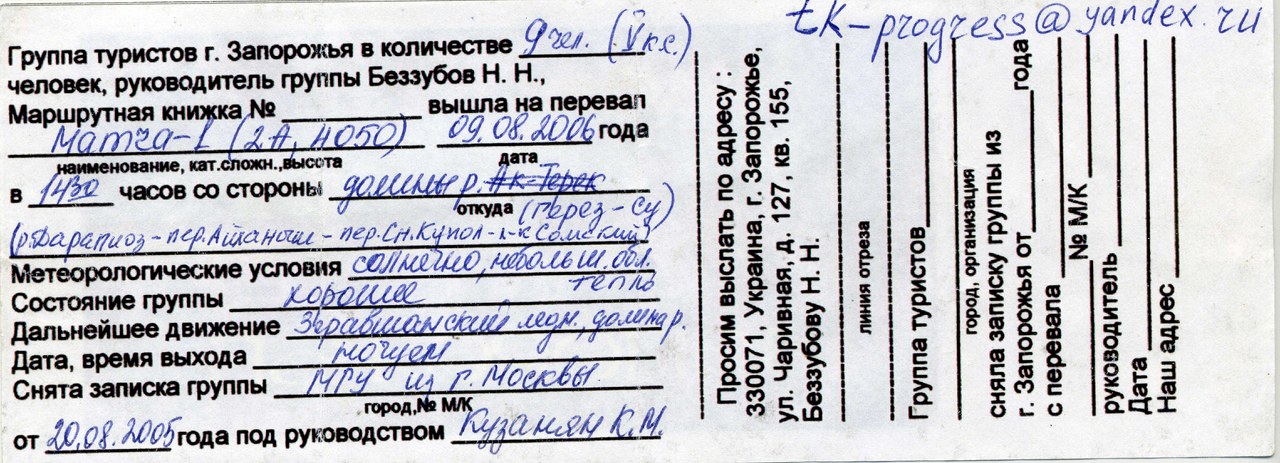 tk-progress@yandex.ru
Группа туристов г. Запорожья в количестве 9 чел. (V к.с.)
человек, руководитель группы Беззубов Н. Н.,
Маршрутная книжка № вышла на перевал
Матча-1 (2А, 4050) 09.08.2006 года
наименование, кат.сложн.,высота дата
в 1430 часов со стороны долины р. Ак-Терек
откуда (Перез-су)
(р.Дараниоз-пер.
Метеорологические условия солнечно, небольш. обл.
тепло
Состояние группы хорошее
Дальнейшее движение Зеравшанский ледн., долина р.
Дата, время выхода ночуем
Снята записка группы МГУ из г. Москвы
город,№ М/К
от 20.08.2005 года под руководством Кузанян К.М.
Просим выслать по адресу :
330071, Украина, г. Запорожье,
ул. Чаривная, д. 127, кв. 155,
Беззубову Н. Н.
линия отреза
Группа туристов
город, организация
сняла записку группы из
г. Запорожья от года
с перевала
№ М/К
руководитель
Дата
Наш адрес